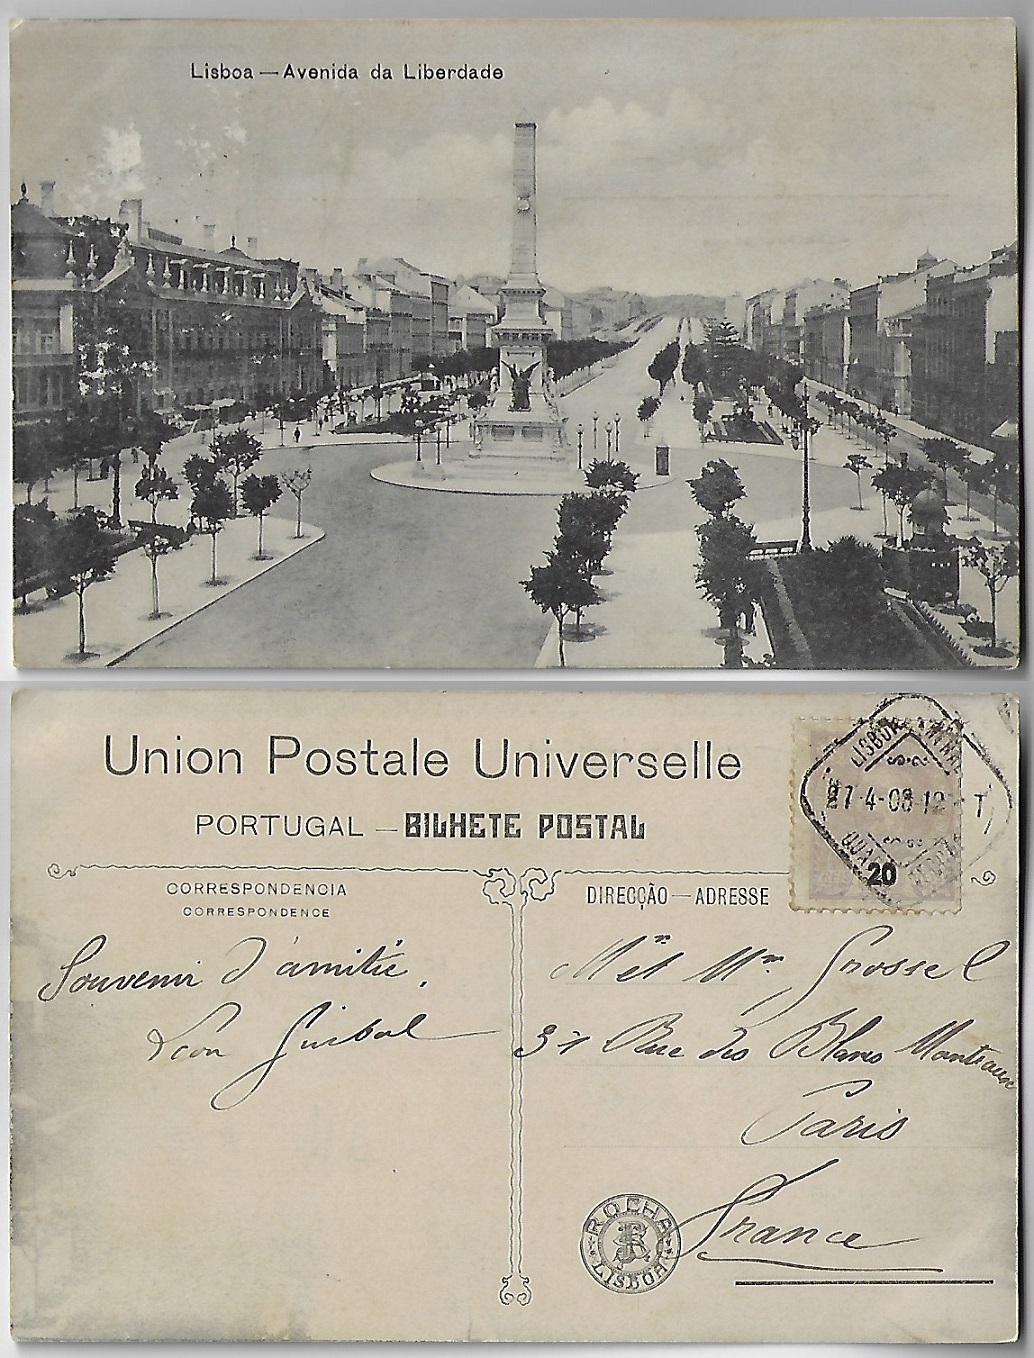 Lisboa — Avenida da Liberdade
Union Postale Universelle
PORTUGAL — BILHETE POSTAL
CORRESPONDENCIA
CORRESPONDENCE
DIRECÇÃO — ADRESSE
LISBOA CENTRAL
27-4-08-12 T
20
Souvenir d'amitié.
Léon Guibal
Mr et Mme Grossel
31 Rue des Blancs Manteaux
Paris
France
ROCHA
LISBOA